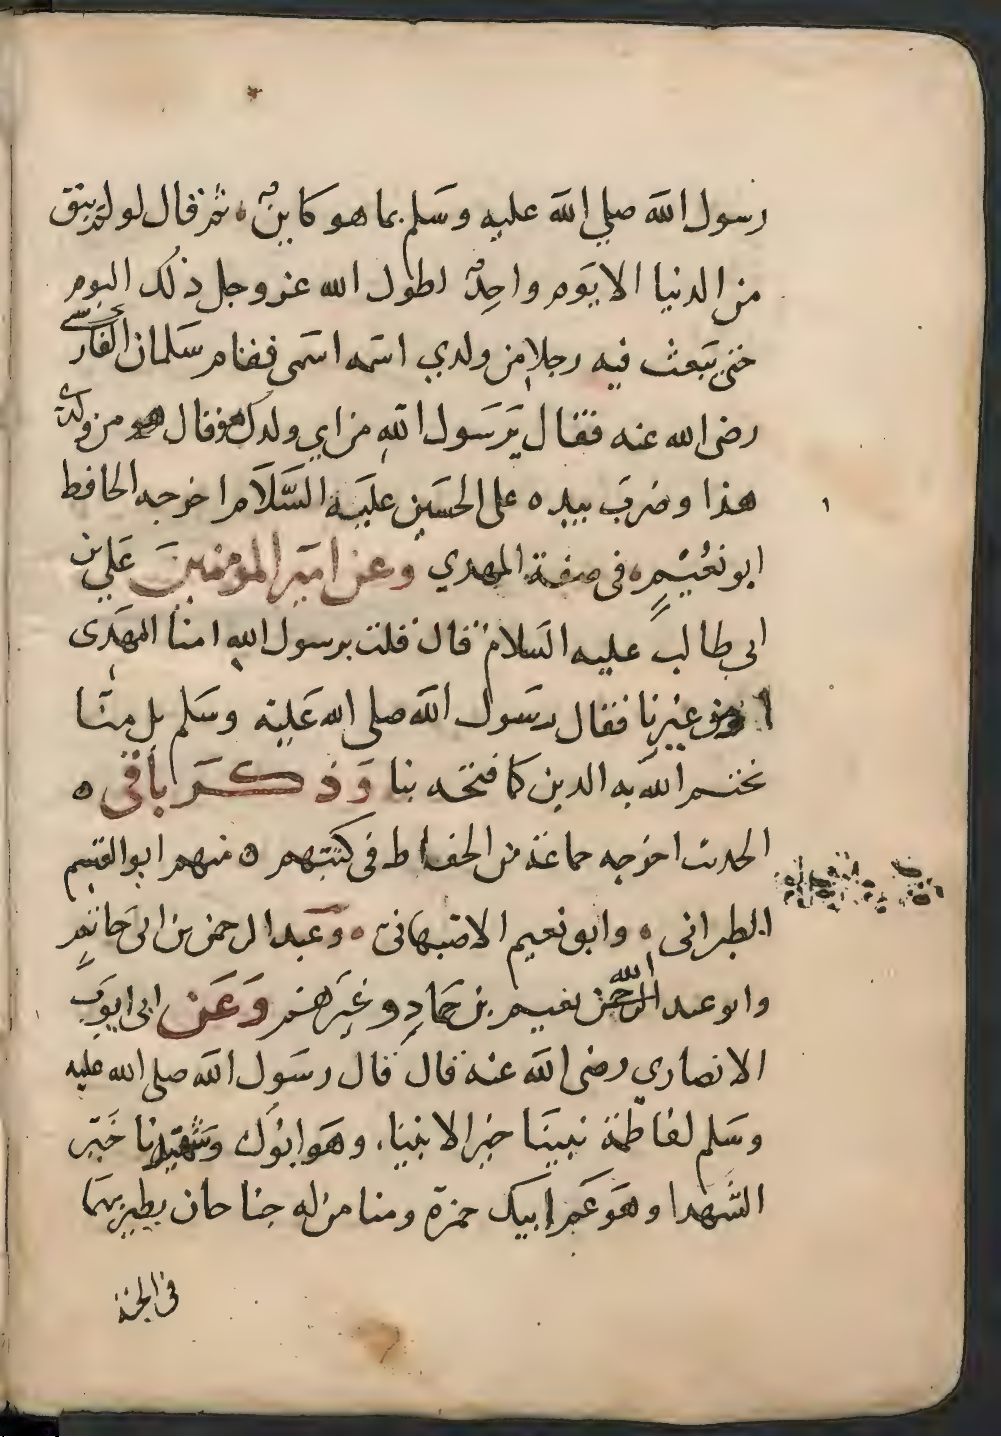 رسول الله صلي الله عليه وسلم بما هو كاينٌ ثم قال لو لم يبق
من الدنيا الا يوم واحدٌ لطول الله عز وجل ذلك اليوم
حتى يبعث فيه رجلا من ولدي اسمه اسمى فقام سلمان الفارسي
رضى الله عنه فقال يرسول الله من اي ولدك هو قال هو من ولدي
هذا وضرب بيده على الحسين عليه السَّلام اخرجه الحافط
ابو نُعيمٍ في صفة المهدي وعن امير المومنين علي بن
ابي طالب عليه السلام قال قلت يرسول الله امنا المهدى
ا ومن غيرنا فقال رسول الله صلى الله عليه وسلم بل منا
يختم الله به الدين كما فتحه بنا وذكر باقي
الحديث اخرجه جماعة من الحفاط في كتبهم منهم ابو القسم
الطبراني وابو نعيم الاصبهاني وعبد الرحمن بن ابي حاتم
وابو عبد الله نعيم بن حماد وغيرهم وعن ابي ايوب
الانصاري رضى الله عنه قال قال رسول الله صلى الله عليه
وسلم لفاطمة نبينا خير الانبيا وهو ابوك وشهيدنا خير
الشهدا وهو عم ابيك حمزة ومنا من له جناحان يطير بهما
في الجنة